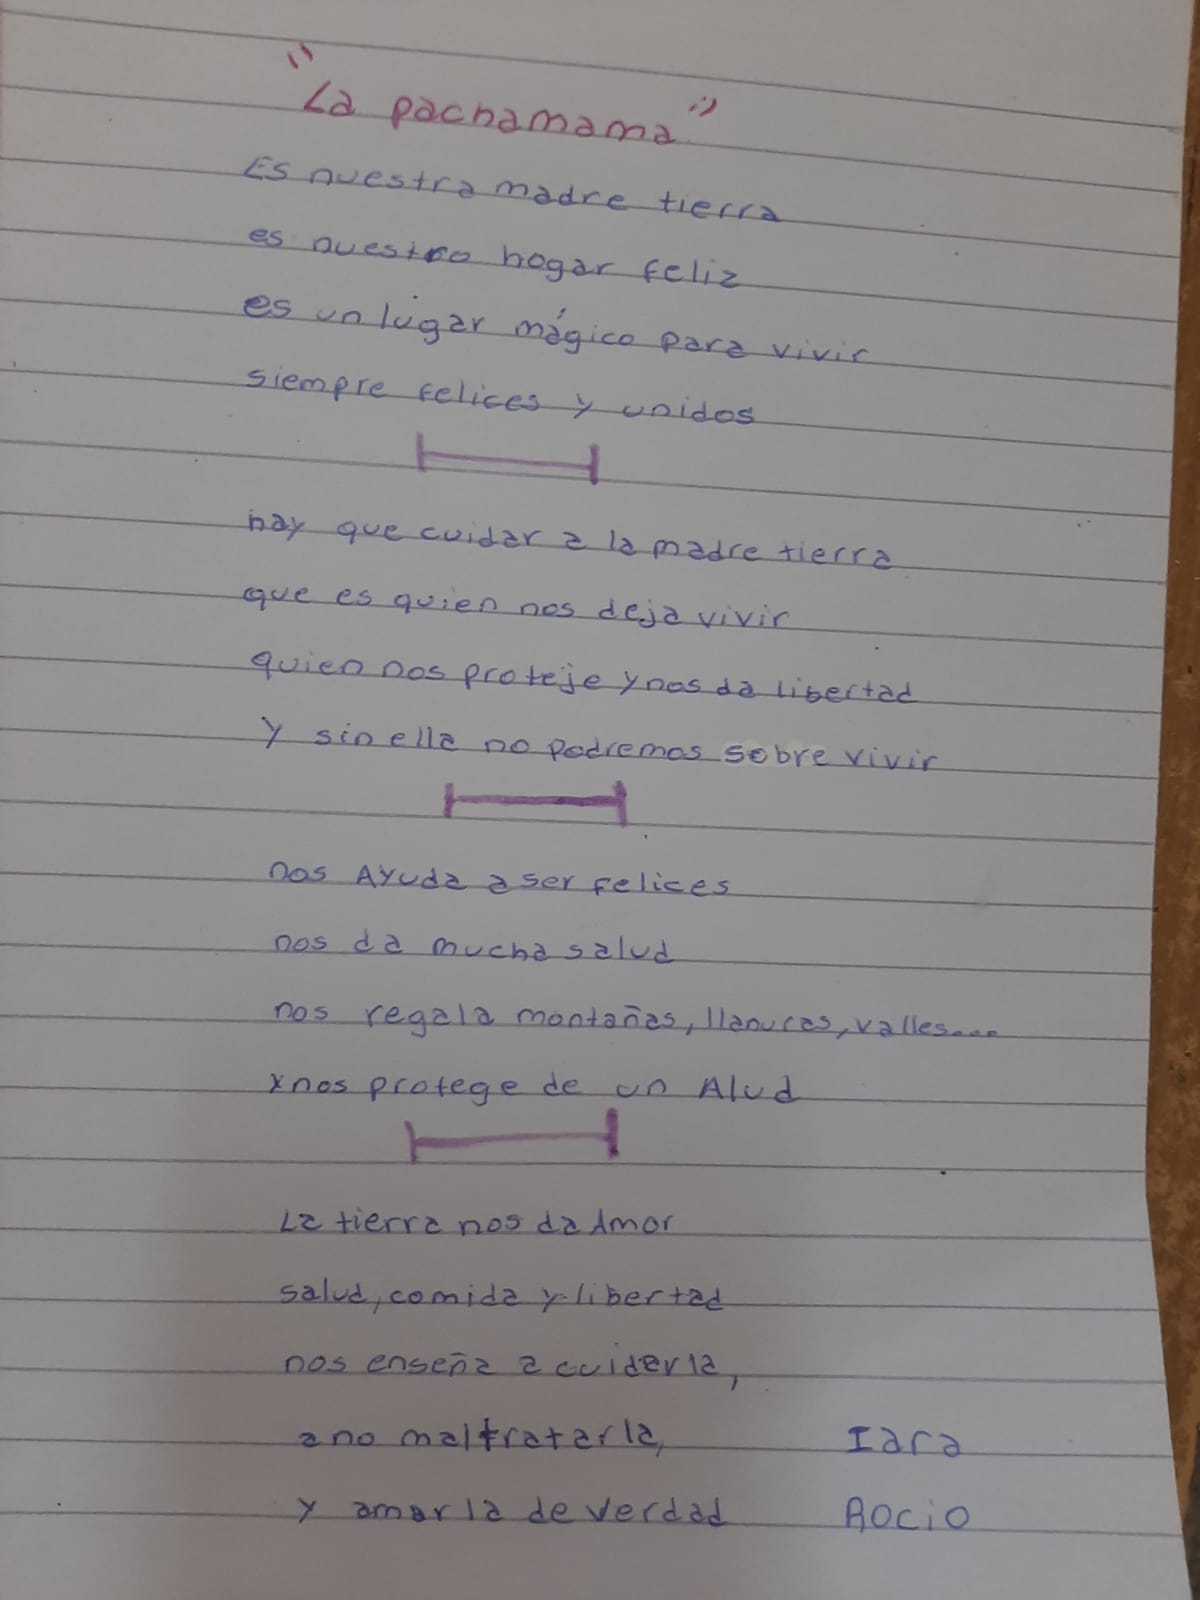 "La pachamama"
Es nuestra madre tierra
es nuestro hogar feliz
es un lugar mágico para vivir
siempre felices y unidos
hay que cuidar a la madre tierra
que es quien nos deja vivir
quien nos proteje y nos da libertad
Y sin ella no podremos sobre vivir
nos Ayuda a ser felices
nos da mucha salud
nos regala montañas, llanuras, valles....
y nos protege de un Alud
La tierra nos da Amor
salud, comida y libertad
nos enseña a cuidarla,
a no maltratarla,
Iara
y amarla de verdad
Rocio